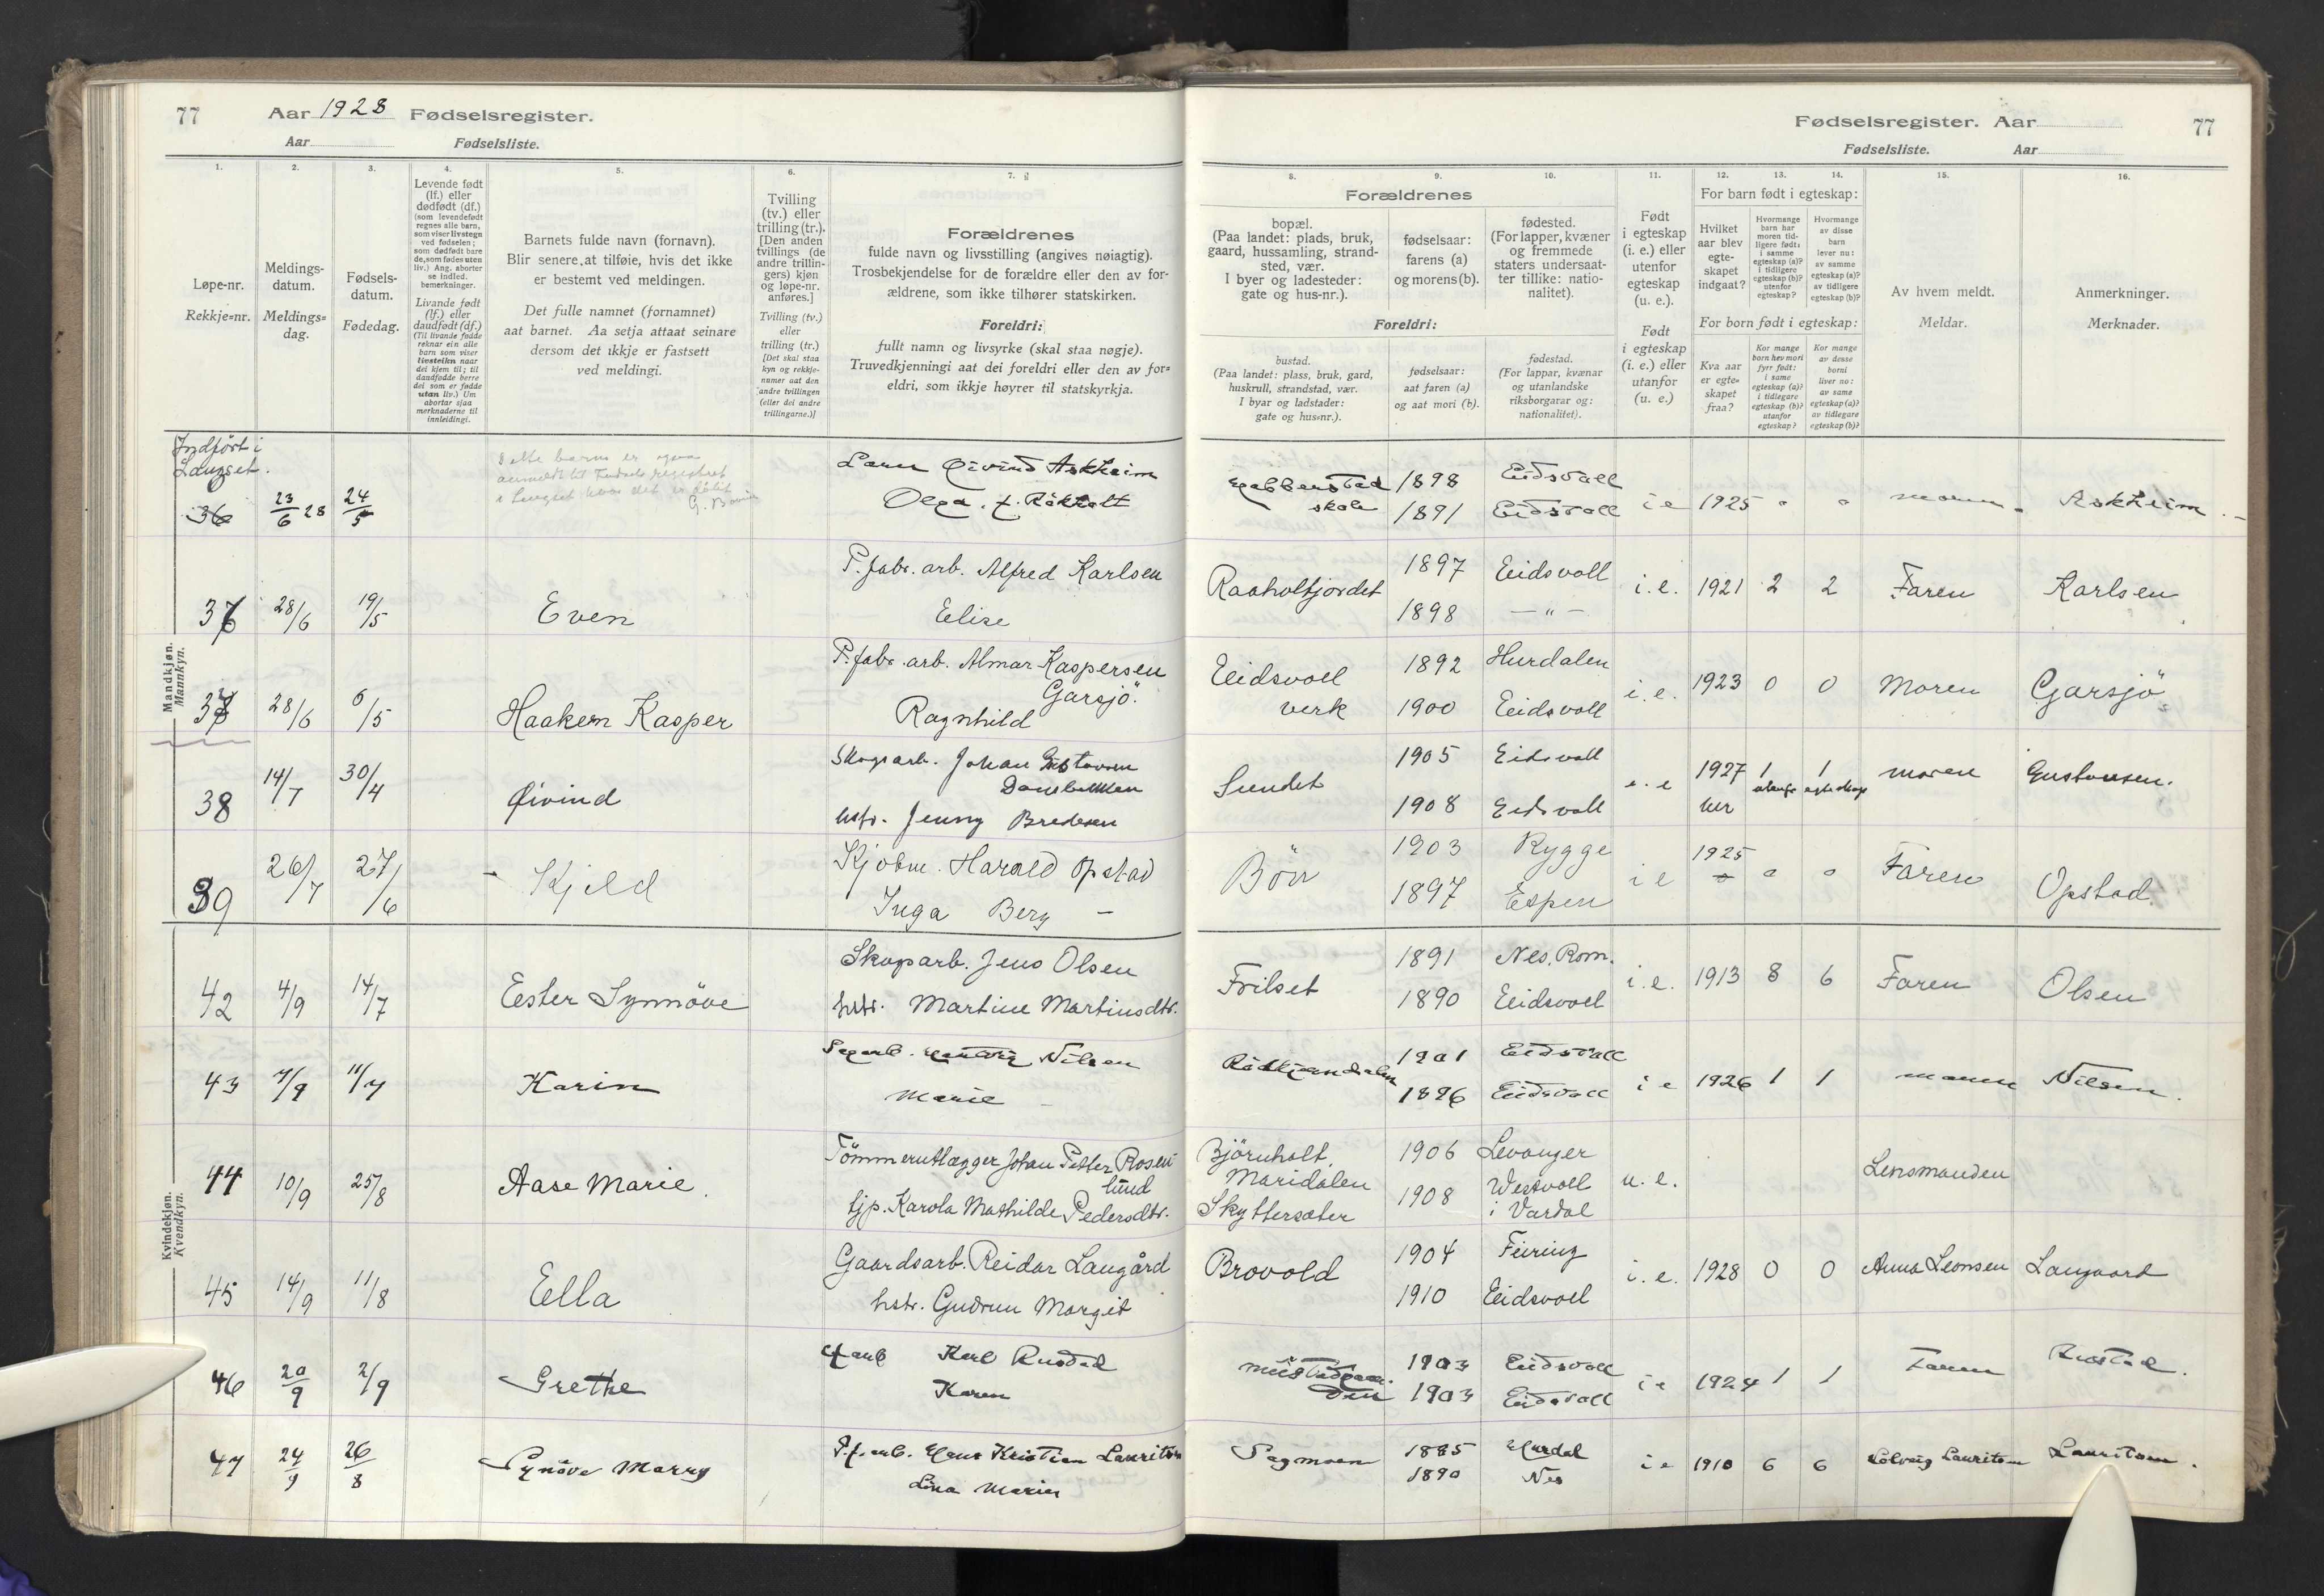 77 Aar 1928 Fødselsregister.
Aar Fødselsliste.
1. 2. 3. 4. 5. 6. 7.
Løpe-nr.
Rekkje=nr.
Meldings-
datum.
Meldings=
dag.
Fødsels-
datum.
Fødedag.
Levende født
(lf.) eller
dødfødt (df.)
(som levendefødt
regnes alle barn,
som viser livstegn
ved fødselen;
som dødfødt bare
de, som fødes uten
liv.) Ang. aborter
se indled.
bemerkninger.
Livande født
(lf.) eller
daudfødt (df.)
(Til livande fødde
reknar ein alle
barn som viser
livsteikn naar
dei kjem til; til
daudfødde berre
dei som er fødde
utan liv.) Um
abortar sjaa
merknaderne til
innleidingi.
Barnets fulde navn (fornavn).
Blir senere at tilføie, hvis det ikke
er bestemt ved meldingen.
Det fulle namnet (fornamnet)
aat barnet. Aa setja attaat seinare
dersom det ikkje er fastsett
ved meldingi.
Tvilling
(tv.) eller
trilling (tr.).
[Den anden
tvillings (de
andre trillin-
gers) kjøn
og løpe-nr.
anføres.]
Tvilling (tv.)
eller
trilling (tr.)
[Det skal staa
kyn og rekkje-
numer aat den
andre tvillingen
(eller dei andre
trillingarne.)]
Forældrenes
fulde navn og livsstilling (angives nøiagtig).
Trosbekjendelse for de forældre eller den av for-
ældrene, som ikke tilhører statskirken.
Foreldri:
fullt namn og livsyrke (skal staa nøgje).
Truvedkjenningi aat dei foreldri eller den av for=
eldri, som ikkje høyrer til statskyrkja.
Fødselsregister. Aar 77
Fødselsliste. Aar
8. 9. 10. 11. 12. 13. 14. 15. 16.
Forældrenes
bopæl.
(Paa landet: plads, bruk,
gaard, hussamling, strand-
sted, vær.
I byer og ladesteder:
gate og hus-nr.).
fødselsaar:
farens (a)
og morens (b).
fødested.
(For lapper, kvæner
og fremmede
staters undersaat-
ter tillike: natio-
nalitet).
Foreldri:
bustad.
(Paa landet: plass, bruk, gard,
huskrull, strandstad, vær.
I byar og ladstader:
gate og hus=nr.).
fødselsaar:
aat faren (a)
og aat mori (b).
fødestad.
(For lappar, kvænar
og utanlandske
riksborgarar og:
nationalitet).
Født
i egteskap
(i. e.) eller
utenfor
egteskap
(u. e.).
Født
i egteskap
(i. e.) eller
utanfor
(u. e.)
For barn født i egteskap:
Hvilket
aar blev
egte-
skapet
indgaat?
Hvormange
barn har
moren tid-
ligere født:
i samme
egteskap (a)?
i tidligere
egteskap (b)?
utenfor
egteskap?
Hvormange
av disse
barn
lever nu:
av samme
egteskap (a)?
av tidligere
egteskap (b)?
For born født i egteskap:
Kva aar
er egte=
skapet
fraa?
Kor mange
born hev mori
fyrr født:
i same
egteskap (a)?
i tidlegare
egteskap (b)?
utanfor
egteskap?
Kor mange
av desse
borni
liver no:
av same
egteskap (a)?
av tidlegare
egteskap (b)?
Av hvem meldt.
Meldar.
Anmerkninger.
Merknader.
Mandkjøn.
Mannkyn.
Indført i
Langset.
Dette barn er også
anmeldt til
i Langset hvor det er født
36 23/6 28 24/5 Øivind Askheim
Olga. f. Råholt
skole 1898 Eidsvoll
1891 Eidsvoll i e 1925 0 0 moren Askheim
37 28/6 19/5 Even P. fabr. arb. Alfred Karlsen
Elise
Raaholtjordet 1897 Eidsvoll i. e. 1921 2 2 Faren Karlsen
1898 — " —
37 28/6 6/5 Haakem Kasper P. fabr. arb. Almar Kaspersen
Garsjö.
Ragnhild
Eidsvoll 1892 Hurdalen
verk 1900 Eidsvoll i. e. 1923 0 0 Moren Garsjö
38 14/7 30/4 Øivind Skogsarb. Johan Gustavsen
hstr. Jenny Bredesen
Sundet 1905 Eidsvoll
1908 Eidsvoll i. e 1927 1 1 moren Gustavsen.
39 26/7 27/6 Kjeld Kjøbm. Harald Opstad
Inga Berg —
Bön 1903 Rygge
1897 Espen i e 1925 0 0 Faren Opstad
Kvindekjøn.
Kvendkyn.
42 4/9 14/7 Ester Synnöve Skogsarb. Jens Olsen
hstr. Martine Martinsdtr.
Frilset 1891 Nes, Rom.
1890 Eidsvoll i. e. 1913 8 6 Faren Olsen
43 7/9 11/7 Karin Nilsen
Marie
1901 Eidsvoll
1896 Eidsvoll i e 1926 1 1 moren Nilsen.
44 10/9 25/8 Aase Marie. Tömmerutlægger Johan Petter Rosen-
lund
tjp. Karola Mathilde Pedersdtr.
Björnholt, 1906 Levanger
Maridalen 1908 Westvoll
Skyttersæter i Vardal
u. e. Lensmanden
45 14/9 11/8 Ella Gaardsarb. Reidar Langård
hstr. Gudrun Margit
Brovold 1904 Feiring
1910 Eidsvoll i. e. 1928 0 0 Anna Leonsen Langaard
46 20/9 2/9 Grethe Karl Rustad
Karen
1903 Eidsvoll
1903 Eidsvoll i e 1924 1 1 Faren Rustad.
47 24/9 26/8 Synöve Marry P. f. arb. Hans Kristian Lauritsen
Lina Marie
Sagmoen 1885 Hurdal
1890 Nes i e 1910 6 6 Solveig Lauritsen Lauritsen.